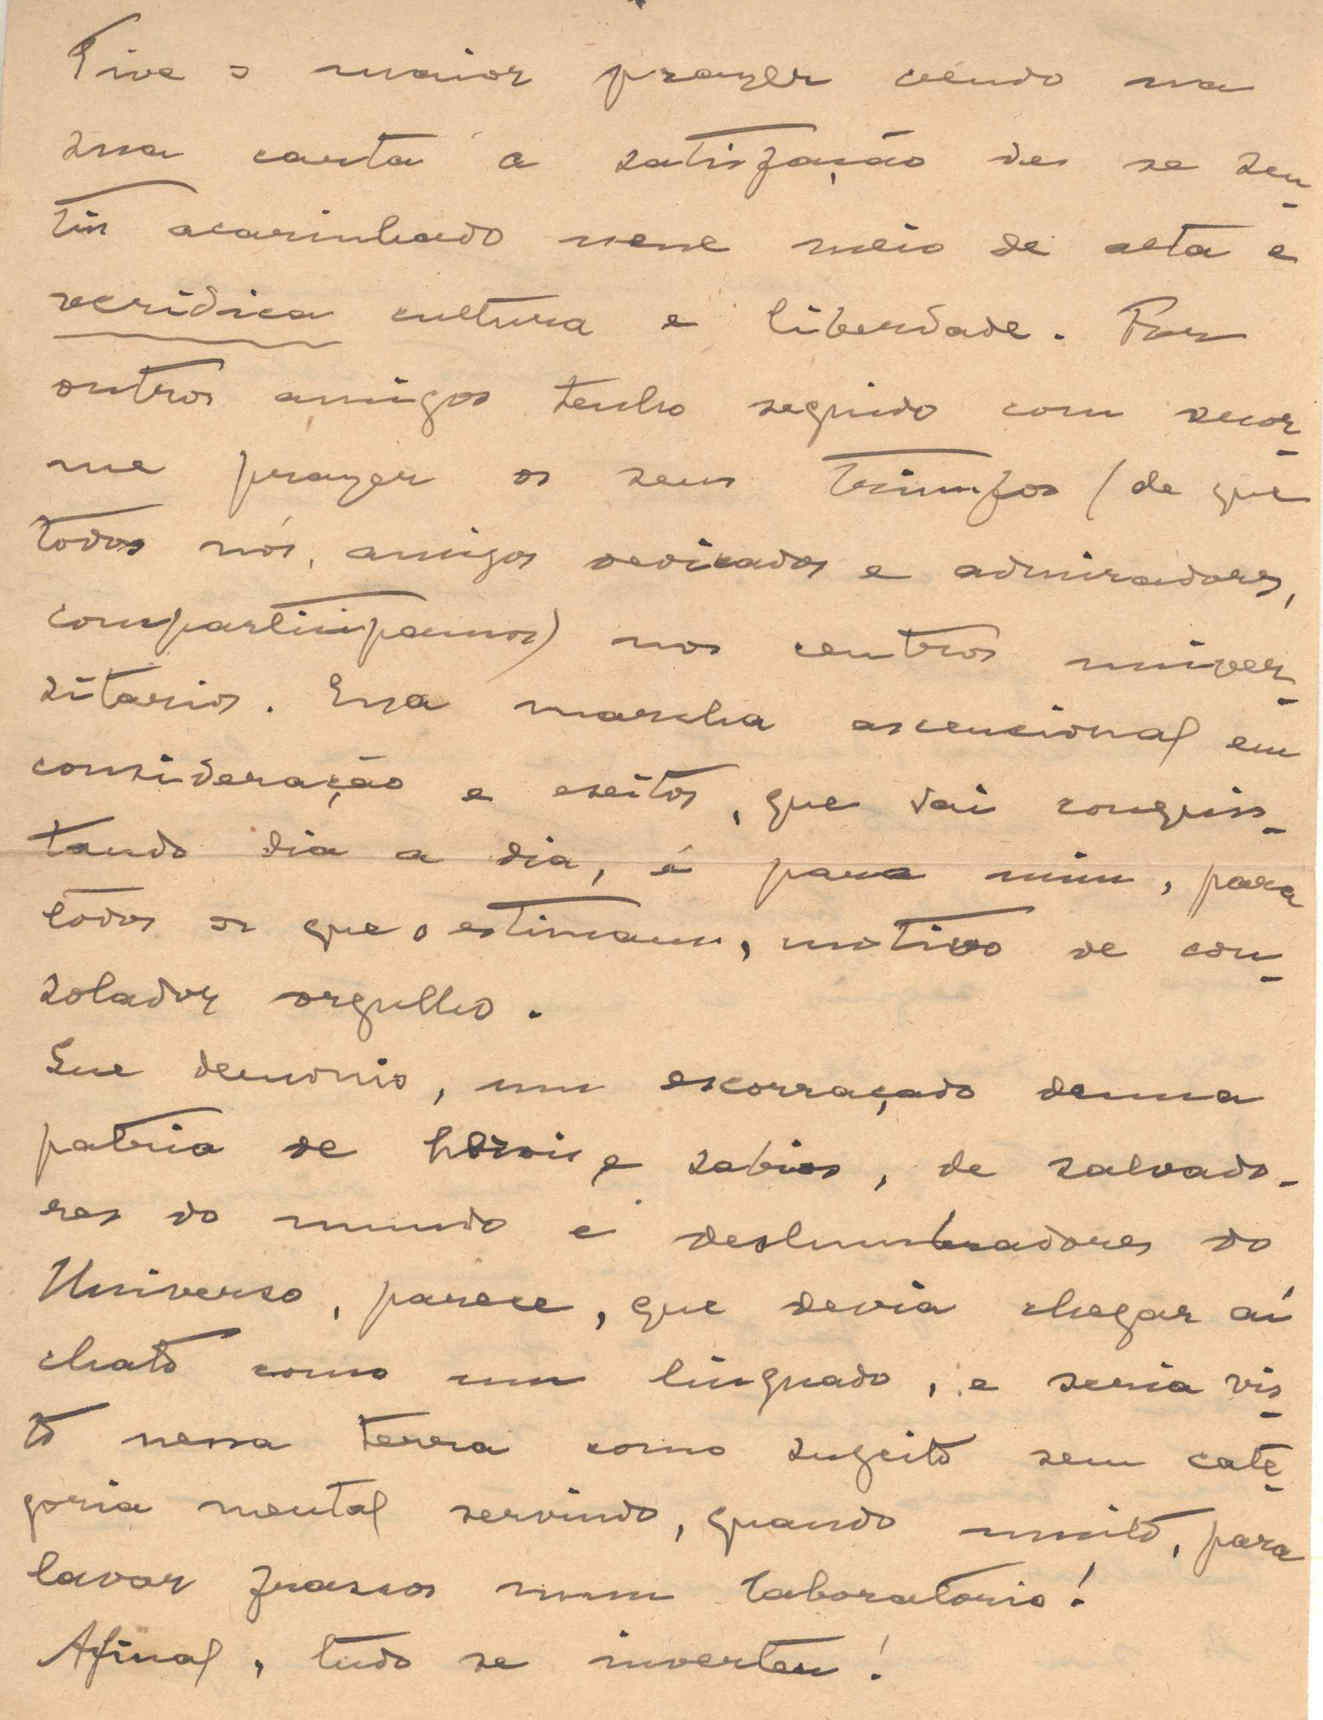 Tive o maior prazer vendo na
sua carta a satisfação de se sen-
tir acarinhado nesse meio de alta e
veridica cultura e liberdade. Por
outros amigos tenho seguido com enor-
me prazer os seus triumfos (de que
todos nós, amigos dedicados e admiradores,
compartilhamos) nos centros univer-
sitarios. Essa marcha ascencional em
consideração e exitos, que vai conquis-
tando dia a dia, é para mim, para
todos os que o estimam, motivo de con-
solador orgulho.
Que demonio, um escorraçado duma
patria de heróis e sabios, de salvado-
res do mundo e deslumbradores do
Universo, parece, que devia chegar aí
chato como um linguado, e seria vis-
to nessa terra como sugeito sem cate-
goria mental servindo, quando muito, para
lavar frascos num laboratorio!
Afinal, tudo se inverteu!